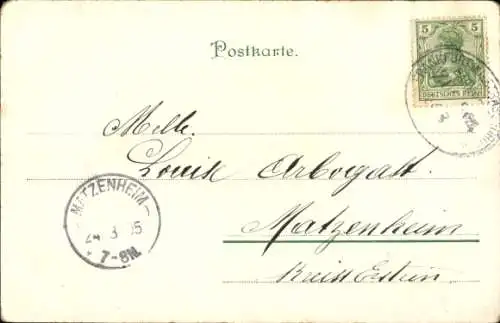 5 5
DEUTSCHES REICH
Postkarte.
Melle.
Louise Arbogast
Matzenheim
Kreis Erstein
MATZENHEIM
24 3 05
7-8N.